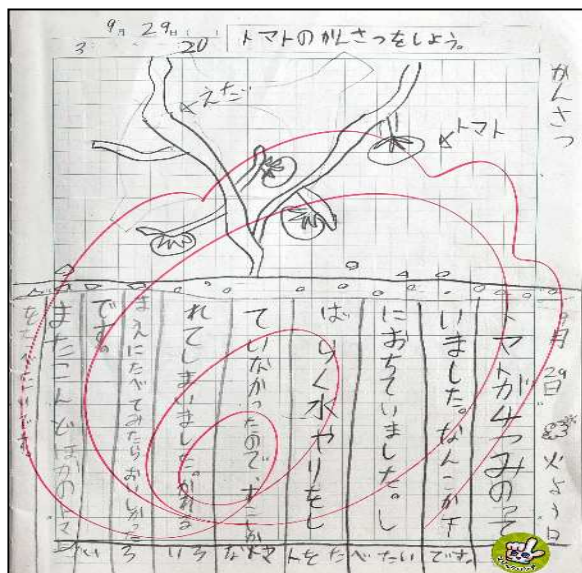 9月29日( )
3 20
トマトのかんさつをしよう。
かんさつ
えだ
トマト
9月29日 火よう日
トマトが4つみのって
いました。なんこか下
におちていました。し
ばらく水やりをし
ていなかったので、すこしか
れてしまいました。かれる
まえにたべてみたらおいしかった
です。
またこんどほかのトマト
をたべたいです。